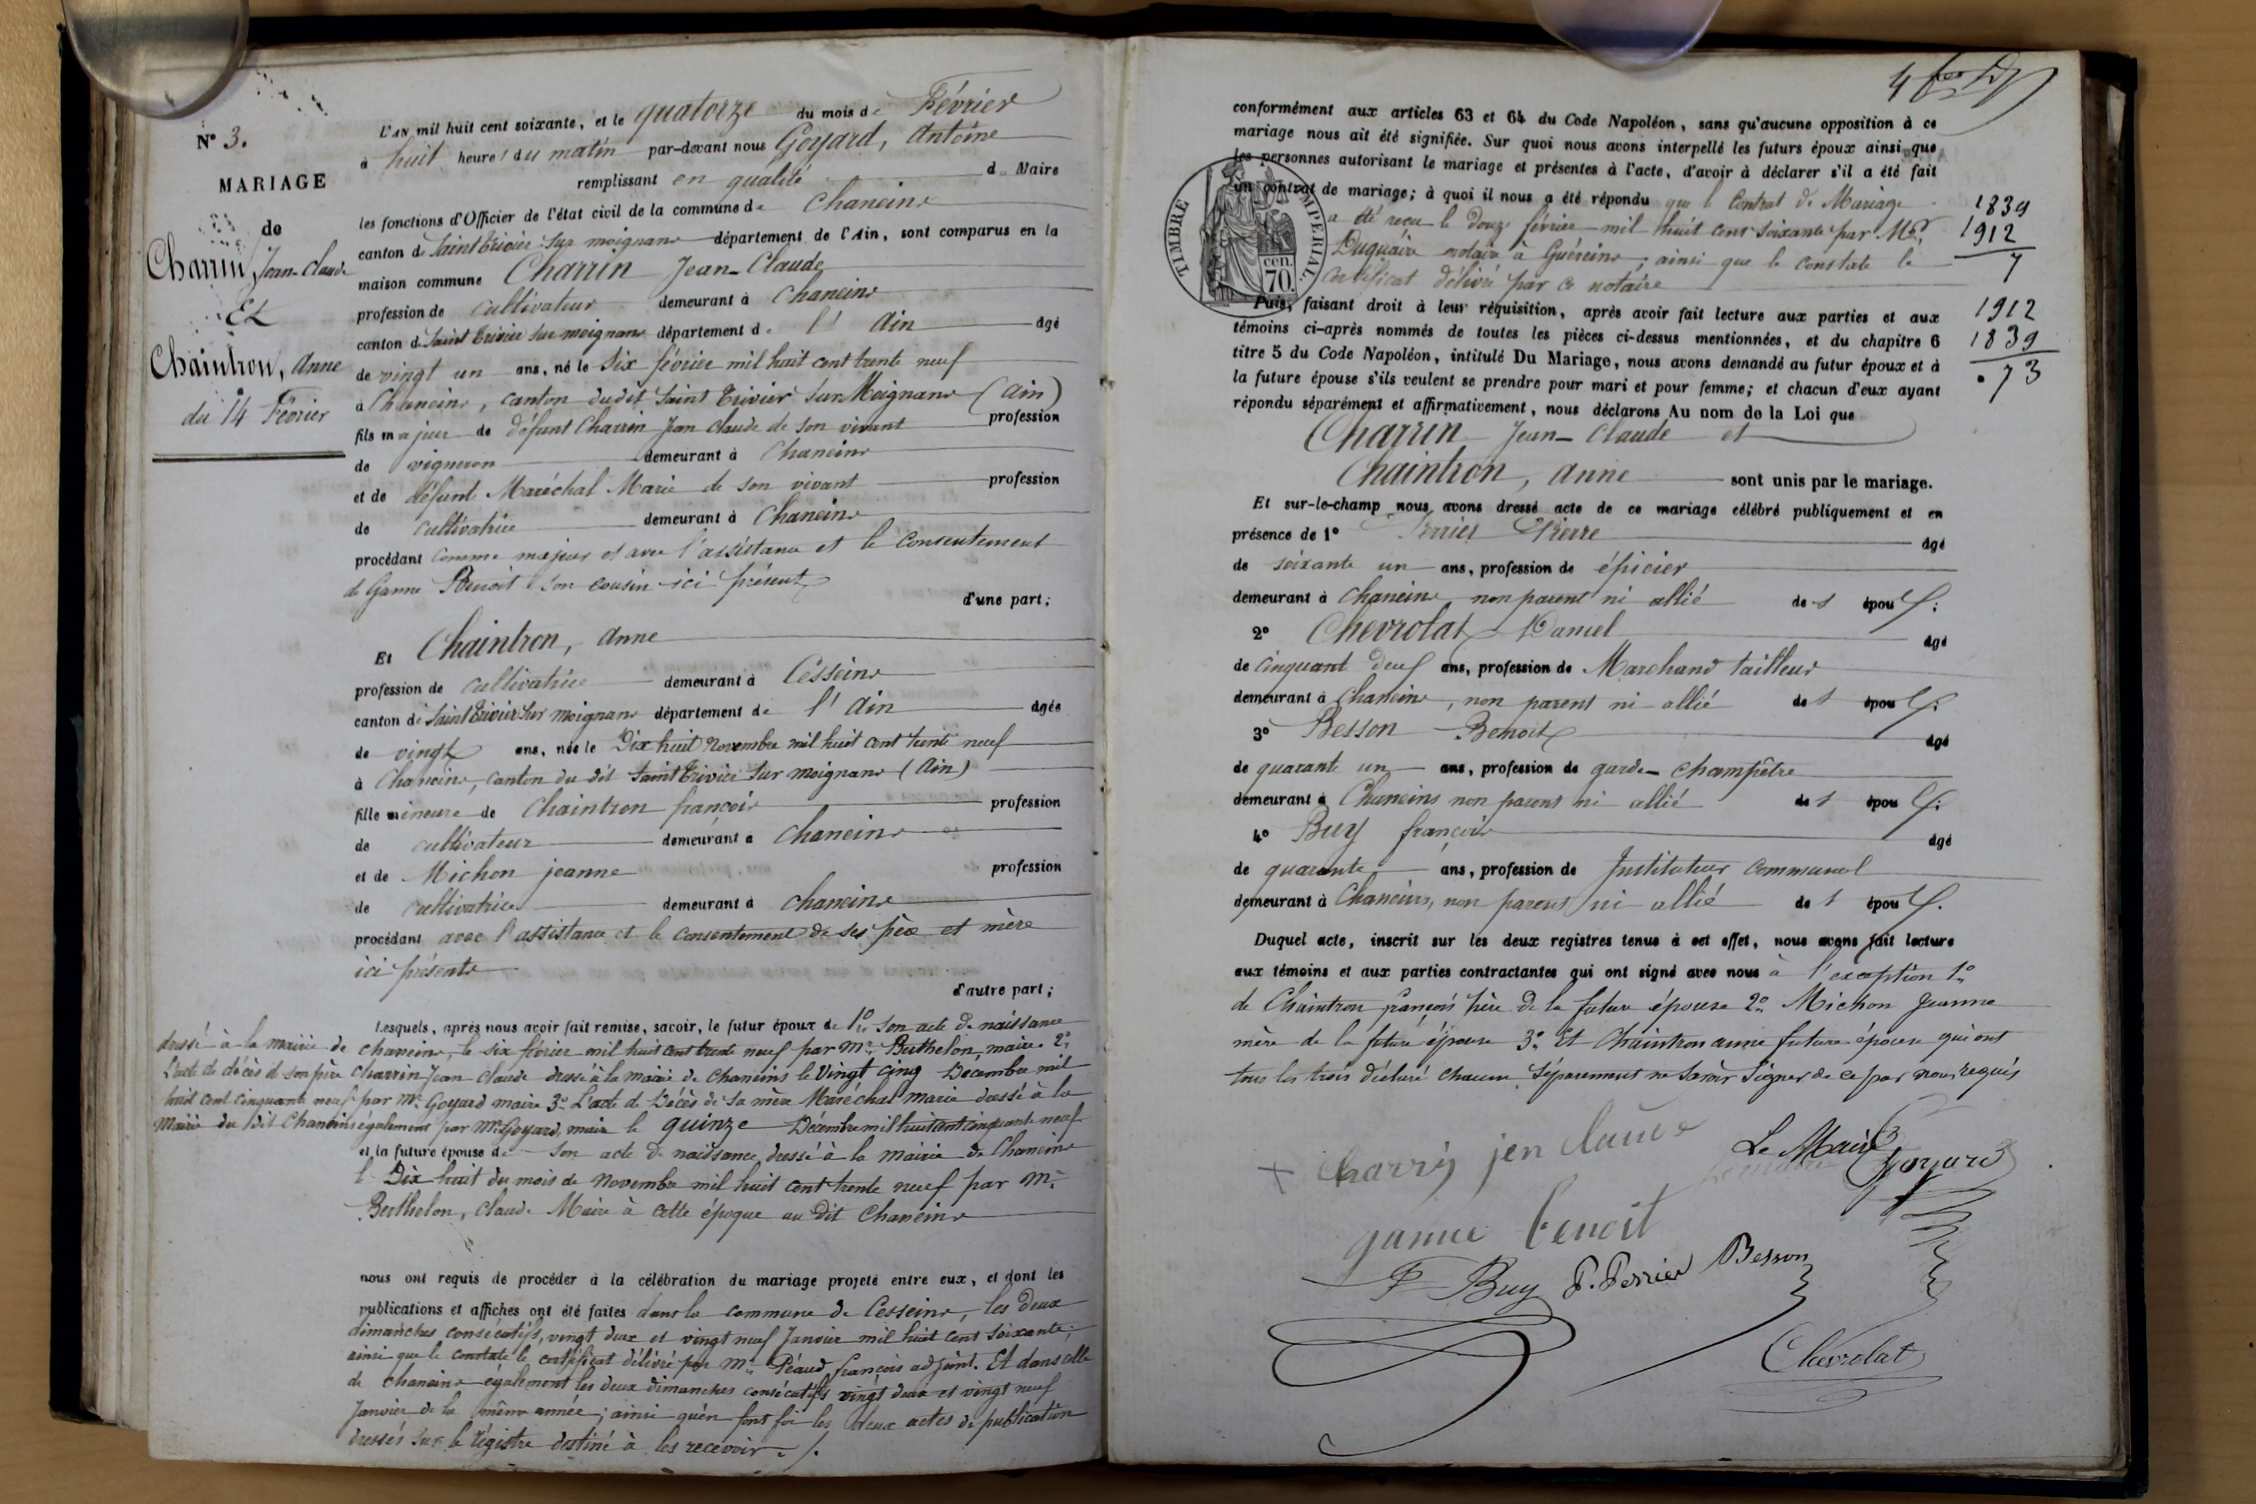 N° 3.
MARIAGE
de
Charrin, Jean-Claude
Et
Chaintron, Anne
du 14 Février
L'AN mil huit cent soixante, et le quatorze du mois de Février
à huit heures du matin par-devant nous Goyard, Antoine
remplissant en qualité de Maire
les fonctions d'Officier de l'état civil de la commune de Chaneins
canton de Saint Trivier sur moignans département de l'Ain, sont comparus en la
maison commune Charrin Jean-Claude
profession de cultivateur demeurant à Chaneins
canton de Saint Trivier sur moignans département de l'Ain âgé
de vingt un ans, né le six février mil huit cent trente neuf
à Chaneins, canton dudit Saint Trivier sur Moignans (Ain)
fils majeur de défunt Charrin Jean claude de son vivant profession
de vigneron demeurant à Chaneins
et de défunte Maréchal Marie de son vivant profession
de cultivatrice demeurant à Chaneins
procédant comme majeur et avec l'assistance et le consentement
de Ganne Benoit son cousin ici présent
d'une part;
Et Chaintron, Anne
profession de cultivatrice demeurant à Cesseins
canton de Saint Trivier sur moignans département de l'Ain âgée
de vingt ans, née le Dix huit novembre mil huit cent trente neuf
à Chaneins, canton du dit Saint Trivier sur moignans (Ain)
fille mineure de Chaintron françois profession
de cultivateur demeurant à Chaneins
et de Michon jeanne profession
de cultivatrice demeurant à chaneins
procédant avec l'assistance et le consentement de ses père et mère
ici présents
d'autre part;
Lesquels, après nous avoir fait remise, savoir, le futur époux de 1° son acte de naissance
dressé à la mairie de chaneins, le six février mil huit cent trente neuf par Mr. Berthelon, maire 2°
L'acte de décès de son père Charrin Jean claude dressé à la mairie de Chaneins le Vingt cinq Décembre mil
huit cent cinquante neuf par Mr. Goyard maire 3° L'acte de Décès de sa mère Maréchal marie dressé à la
Mairie du Dit Chaneins également par Mr. Goyard, maire le quinze Décembre mil huit cent cinquante neuf
et la future épouse de son acte de naissance, dressé à la mairie de Chaneins
le Dix huit du mois de Novembre mil huit cent trente neuf par Mr.
Berthelon, Claude Maire à cette époque au Dit Chaneins
nous ont requis de procéder à la célébration du mariage projeté entre eux, et dont les
publications et affiches ont été faites dans la commune de Cesseins, les deux
dimanches consécutifs, vingt deux et vingt neuf Janvier mil huit cent soixante;
ainsi que le constate le certificat délivré par Mr. Péaud, françois adjoint. Et dans celle
de Chaneins également les deux dimanches consécutifs vingt deux et vingt neuf
Janvier de la même année; ainsi qu'en font foi les deux actes de publication
dressés sur le régistre destiné à les recevoir
4
conformément aux articles 63 et 64 du Code Napoléon, sans qu'aucune opposition à ce
mariage nous ait été signifiée. Sur quoi nous avons interpellé les futurs époux ainsi que
les personnes autorisant le mariage et présentes à l'acte, d'avoir à déclarer s'il a été fait
un contrat de mariage; à quoi il nous a été répondu que le Contrat de Mariage
a été reçu le douze février mil huit cent soixante par Me
Duquaire notaire à Guéreins; ainsi que le constate le
certificat délivré par ce notaire
TIMBRE IMPERIAL
70 cen.
1839
1912
7
1912
1839
. 73
Puis, faisant droit à leur réquisition, après avoir fait lecture aux parties et aux
témoins ci-après nommés de toutes les pièces ci-dessus mentionnées, et du chapitre 6
titre 5 du Code Napoléon, intitulé Du Mariage, nous avons demandé au futur époux et à
la future épouse s'ils veulent se prendre pour mari et pour femme; et chacun d'eux ayant
répondu séparément et affirmativement, nous déclarons Au nom de la Loi que
Charrin Jean-Claude et
Chaintron, Anne sont unis par le mariage.
Et sur-le-champ nous avons dressé acte de ce mariage célébré publiquement et en
présence de 1° Perrier Pierre âgé
de soixante un ans, profession de épicier
demeurant à Chaneins, non parent ni allié des époux;
2° Chevrolat Daniel âgé
de cinquant deux ans, profession de Marchand tailleur
demeurant à Chaneins, non parent ni allié des époux;
3° Besson Benoit âgé
de quarante un ans, profession de garde-champêtre
demeurant à Chaneins non parent ni allié des époux;
4° Buy françois âgé
de quarante ans, profession de Instituteur communal
demeurant à Chaneins, non parent ni allié des époux.
Duquel acte, inscrit sur les deux registres tenus à cet effet, nous avons fait lecture
aux témoins et aux parties contractantes qui ont signé avec nous à l'exception 1°
de Chaintron françois père de la future épouse 2° Michon Jeanne
mère de la future épouse 3° Et Chaintron anne future épouse qui ont
tous les trois déclaré chacun séparement ne savoir signer de ce par nous requis
charrin jen claude
Le Maire
Goyard
ganne benoit
F Buy P. Perrier Besson
Chevrolat